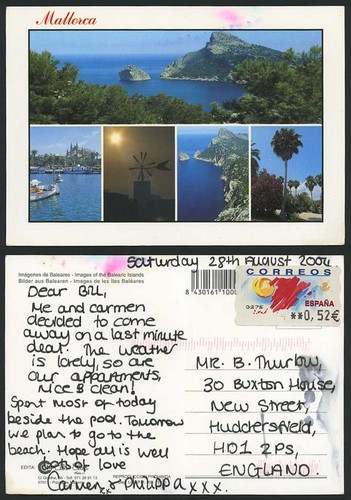 Mallorca
Saturday 28th August 2004
Imágenes de Baleares - Images of the Balearic Islands
Bilder aus Balearen - Images de les Illes Baléares
8 430161 1000
CORREOS
ESPAÑA
0275
**0,52€
Dear Bill,
Me and carmen
decided to come
away on a last minute
deal. The weather
is lovely, so are
our appartments,
nice & clean!
Spent most of today
beside the pool. Tomorrow
we plan to go to the
beach. Hope all is well
Lots of love
Carmen & Philippa xxx.
xx
MR. B. Thurlow,
30 Buxton House,
New Street,
Huddersfield,
HD1 2PS,
ENGLAND.
EDITA: